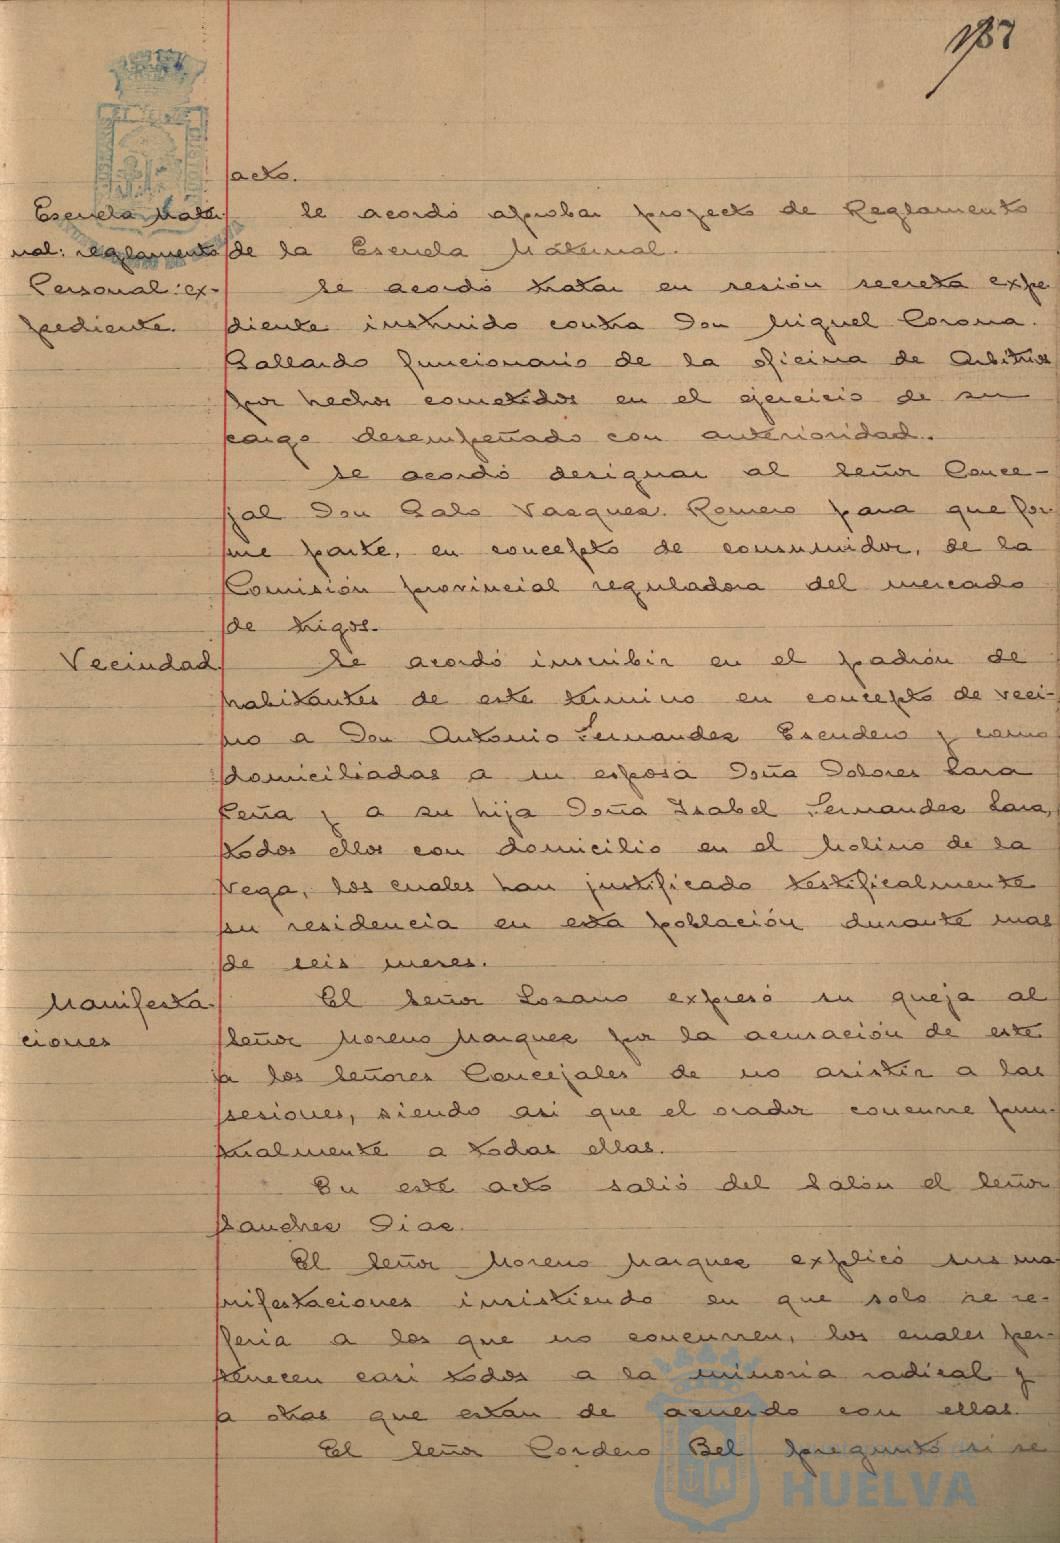 187
acto.
Escuela Mater-
nal: reglamento
Se acordó aprobar proyecto de Reglamento
de la Escuela Maternal.
Personal: ex-
pediente.
Se acordó tratar en sesión secreta expe-
diente instruido contra Don Miguel Corona
Gallardo funcionario de la oficina de Arbitrios
por hechos cometidos en el ejercicio de su
cargo desempeñado con anterioridad.
Se acordó designar al Señor Conce-
jal Don Galo Vazquez Romero para que for-
me parte, en concepto de consumidor, de la
Comisión provincial reguladora del mercado
de trigos.
Vecindad
Se acordó inscribir en el padrón de
habitantes de este término en concepto de veci-
no a Don Antonio Fernandez Escudero y como
domiciliadas a su esposa Doña Dolores Lara
Peña y a su hija Doña Isabel Fernandez Lara,
todos ellos con domicilio en el Molino de la
Vega, los cuales han justificado testificalmente
su residencia en esta población durante mas
de seis meses.
Manifesta-
ciones
El Señor Lozano expresó su queja al
Señor Moreno Marquez por la acusación de este
a los Señores Concejales de no asistir a las
sesiones, siendo asi que el orador concurre pun-
tualmente a todas ellas.
En este acto salió del Salón el Señor
Sanchez Diaz.
El Señor Moreno Marquez explicó sus ma-
nifestaciones insistiendo en que solo se re-
feria a los que no concurren, los cuales per-
tenecen casi todos a la minoria radical y
a otras que estan de acuerdo con ellas.
El Señor Cordero Bel preguntó si se
HUELVA